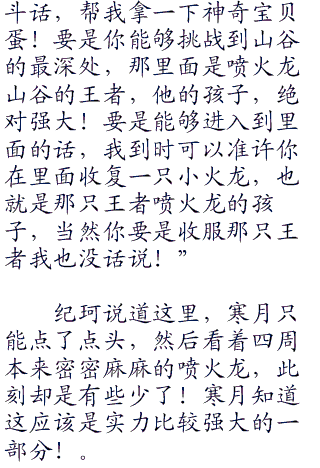 斗话，帮我拿一下神奇宝贝
蛋！要是你能够挑战到山谷
的最深处，那里面是喷火龙
山谷的王者，他的孩子，绝
对强大！要是能够进入到里
面的话，我到时可以准许你
在里面收复一只小火龙，也
就是那只王者喷火龙的孩
子，当然你要是收服那只王
者我也没话说！”
纪珂说道这里，寒月只
能点了点头，然后看着四周
本来密密麻麻的喷火龙，此
刻却是有些少了！寒月知道
这应该是实力比较强大的一
部分！。